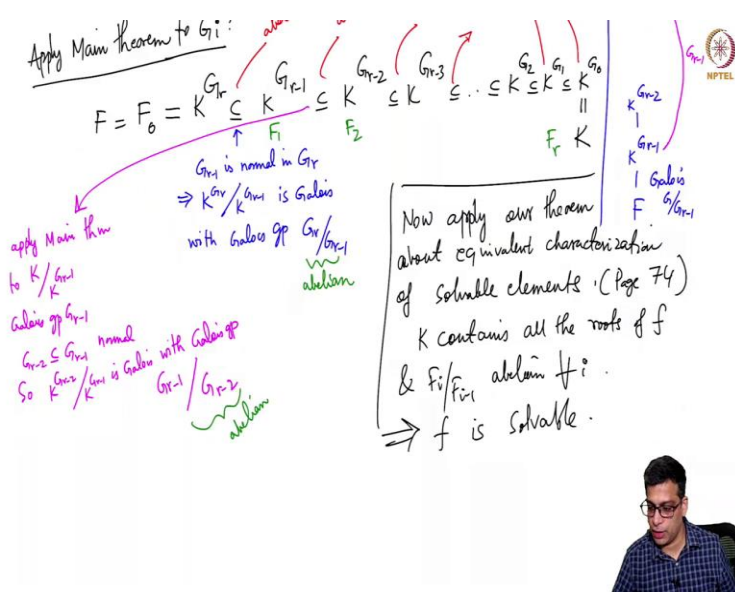 Apply Main theorem to Gi:
F = F₀ = K^{Gr} ⊆ K^{Gr-1} ⊆ K^{Gr-2} ⊆ K^{Gr-3} ⊆ .. ⊆ K^{G₂} ⊆ K^{G₁} ⊆ K^{G₀}
F₁ F₂ Fr
||
K
↑
Gr-1 is normal in Gr
⇒ K^{Gr}/K^{Gr-1} is Galois
with Galois gp Gr/Gr-1
abelian
apply Main thm
to K/K^{Gr-1}
Galois gp Gr-1
Gr-2 ⊆ Gr-1 normal
So K^{Gr-2}/K^{Gr-1} is Galois with Galois gp
Gr-1/Gr-2
abelian
Now apply our theorem
about equivalent characterization
of solvable elements. (Page 74)
K contains all the roots of f
& Fi/Fi-1 abelian ∀ i.
⇒ f is solvable.
K^{Gr-2}
|
K^{Gr-1}
| Galois
F G/Gr-1
Gr-1
NPTEL